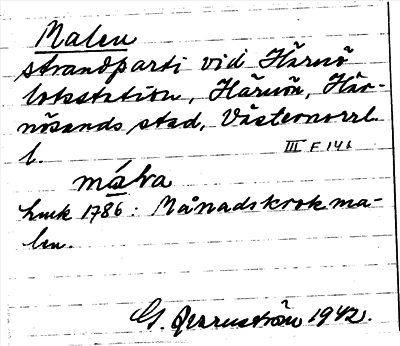 Malen
strandparti vid Härnö
lotsstation, Härnön, Här-
nösands stad, Västernorrl.
l.
III F 14 b
målva
hmk 1786: Månadskrok ma-
len.
G. 1942.